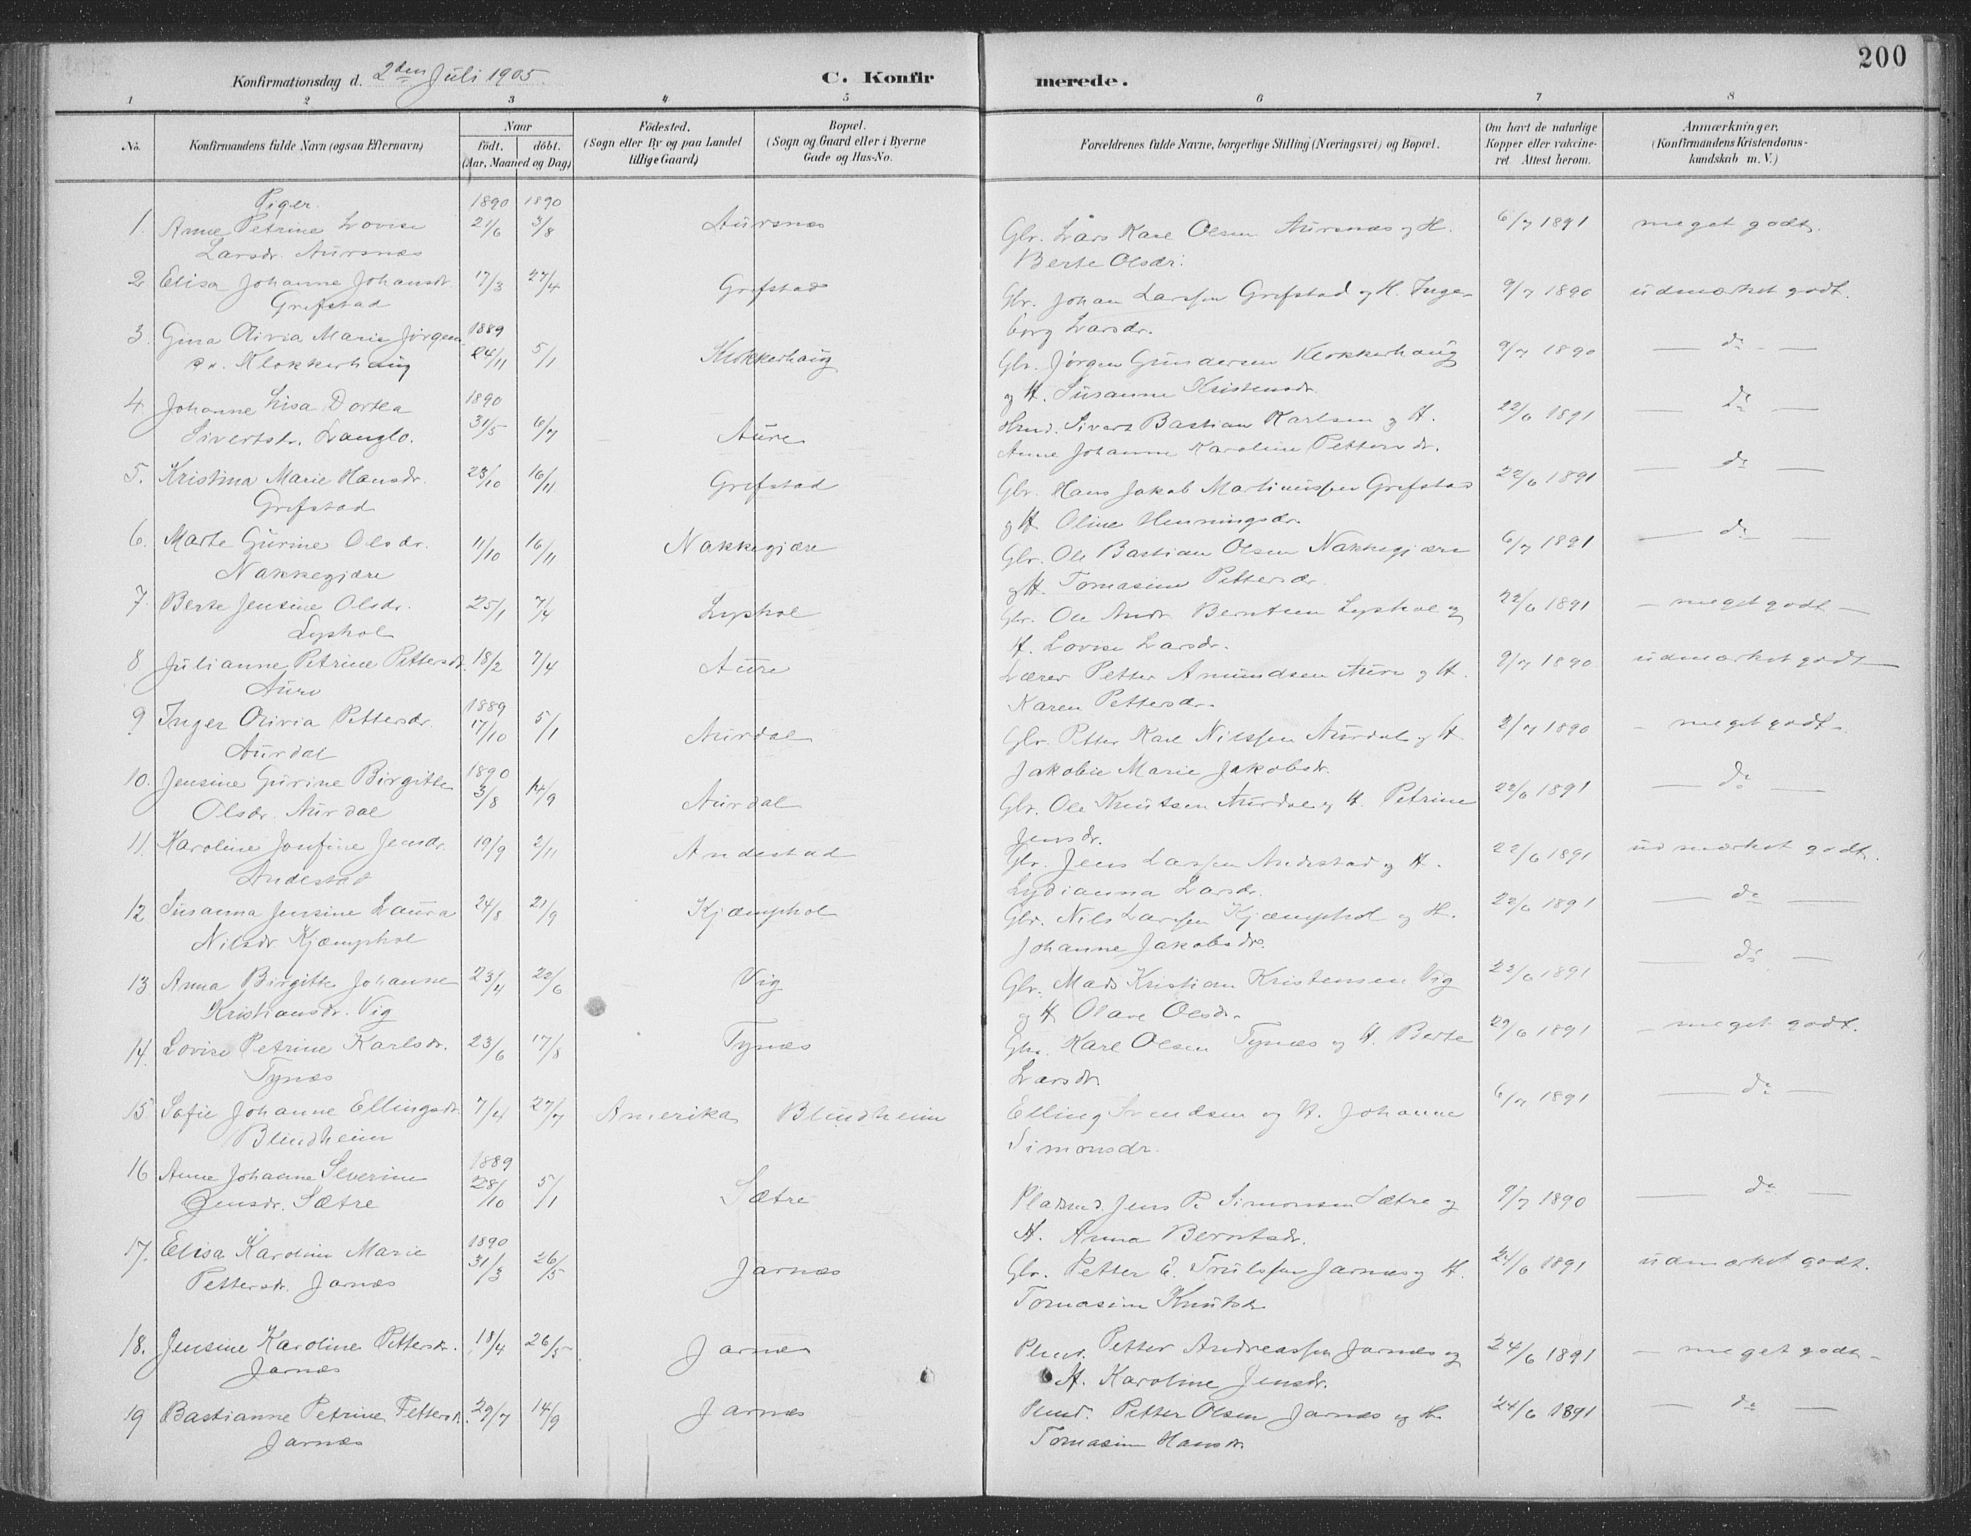 200
Konfirmationsdag d. 2den Juli 1905.
C. Konfirmerede.
1 2 3 4 5 6 7 8
No.
Konfirmandens fulde Navn (ogsaa Efternavn)
Naar
født. døbt.
(Aar, Maaned og Dag)
Fødested.
(Sogn eller By og paa Landet
tillige Gaard)
Bopæl.
(Sogn og Gaard eller i Byerne
Gade og Hus-No.
Forældrenes fulde Navne, borgerlige Stilling (Næringsvei) og Bopæl.
Om havt de naturlige
Kopper eller vakcine-
ret Attest herom.
Anmærkninger.
(Konfirmandens Kristendoms-
kundskab m. V.)
Piger. 1890 1890
1. Anne Petrine Lovise 21/6 3/8 Aursnes Gbr. Lars Karl Olsen Aursnes og H. 6/7 1891 meget godt.
Larsdr. Aursnes Berte Olsdr.
2 Elisa Johanne Johansdr. 17/3 27/4 Grefstad Gbr. Johan Larssen Grefstad og H. Inge- 9/7 1890 udmærket godt.
Grefstad borg Larsdr.
3. Gina Olivia Marie Jørgens- 1889 24/11 5/1 Klokkerhaug Gbr. Jørgen Gundersen Klokkerhaug 9/7 1890 — do —
dr. Klokkerhaug og H. Susanne Kristensdr.
4. Johanne Lisa Dortea 1890 31/5 6/7 Aure Sivert Bastian Karlsen og H. 22/6 1891 — do —
Sivertsdr. Langlo. Anne Johanne Karoline Pettersdr.
5. Kristina Marie Hansdr. 23/10 16/11 Grefstad Gbr. Hans Jakob Martinussen Grefstad 22/6 1891 — do —
Grefstad og H. Oline Henningsdr.
6. Marte Gurine Olsdr. 11/10 16/11 Nakkegjære Gbr. Ole Bastian Olsen Nakkegjære 6/7 1891 — do —
Nakkegjære og H. Tomasine Pettersdr.
7. Berte Jensine Olsdr. 25/1 7/4 Lyshol Gbr. Ole Andr. Berntsen Lyshol og 22/6 1891 — meget godt —
Lyshol H. Lovise Larsdr.
8 Julianne Petrine Pettersdr. 18/2 7/4 Aure Lærer Petter Amundsen Aure og H. 9/7 1890 udmærket godt —
Aure Karen Pettersdr.
9 Inger Olivia Pettersdr. 1889 17/10 5/1 Aurdal Gbr. Petter Karl Nilssen Aurdal og H 2/7 1890 — meget godt —
Aurdal Jakobie Marie Jakobsdr.
10. Jensine Gurine Birgitte 1890 3/8 14/9 Aurdal Gbr. Ole Knutsen Aurdal og H. Petrine 22/6 1891 — do —
Olsdr. Aurdal Jensdr.
11. Karoline Josefine Jensdr. 19/9 2/11 Andestad Gbr. Jens Larssen Andestad og H. 22/6 1891 udmærket godt.
Andestad Lydianna Larsdr.
12 Susanna Jensine Laura 24/8 21/9 Kjæmphol Gbr. Nils Larssen Kjæmphol og H. 22/6 1891 — do —
Nilsdr. Kjæmphol Johanne Jakobsdr.
13 Anna Birgitte Johanne 23/4 22/6 Vig Gbr. Mads Kristian Kristensen Vig 22/6 1891 — do —
Kristiansdr. Vig og H Olave Olsdr.
14. Lovise Petrine Karlsdr. 23/6 17/8 Tynes Gbr. Karl Olsen Tynes og H. Berte 29/6 1891 — meget godt.
Tynes Larsdr.
15 Sofie Johanne Ellingsdr. 7/4 27/7 Amerika Blindheim Elling Svendsen og H. Johanne 6/7 1891 — do —
Blindheim Simonsdr.
16 Anne Johanne Severine 1889 28/10 5/1 Sætre Pladsmd. Jens P. Simonsen Sætre og 9/7 1890 — do —
Jensdr. Sætre H. Anna Berntsdr.
17. Elisa Karoline Marie 1890 31/3 26/5 Jarnes Gbr. Petter E. Trulssen Jarnes og H. 24/6 1891 udmærket godt.
Pettersdr. Jarnes Tomasine Knutsdr
18. Jensine Karoline Pettersdr. 18/4 26/5 Jarnes Plmd. Petter Andreassen Jarnes og 24/6 1891 — meget godt —
Jarnes H. Karoline Jensdr.
19 Bastianne Petrine Pettersdr. 29/7 14/9 Jarnes Plmd. Petter Olsen Jarnes og H. 24/6 1891 — do —
Jarnes Tomasine Hansdr.